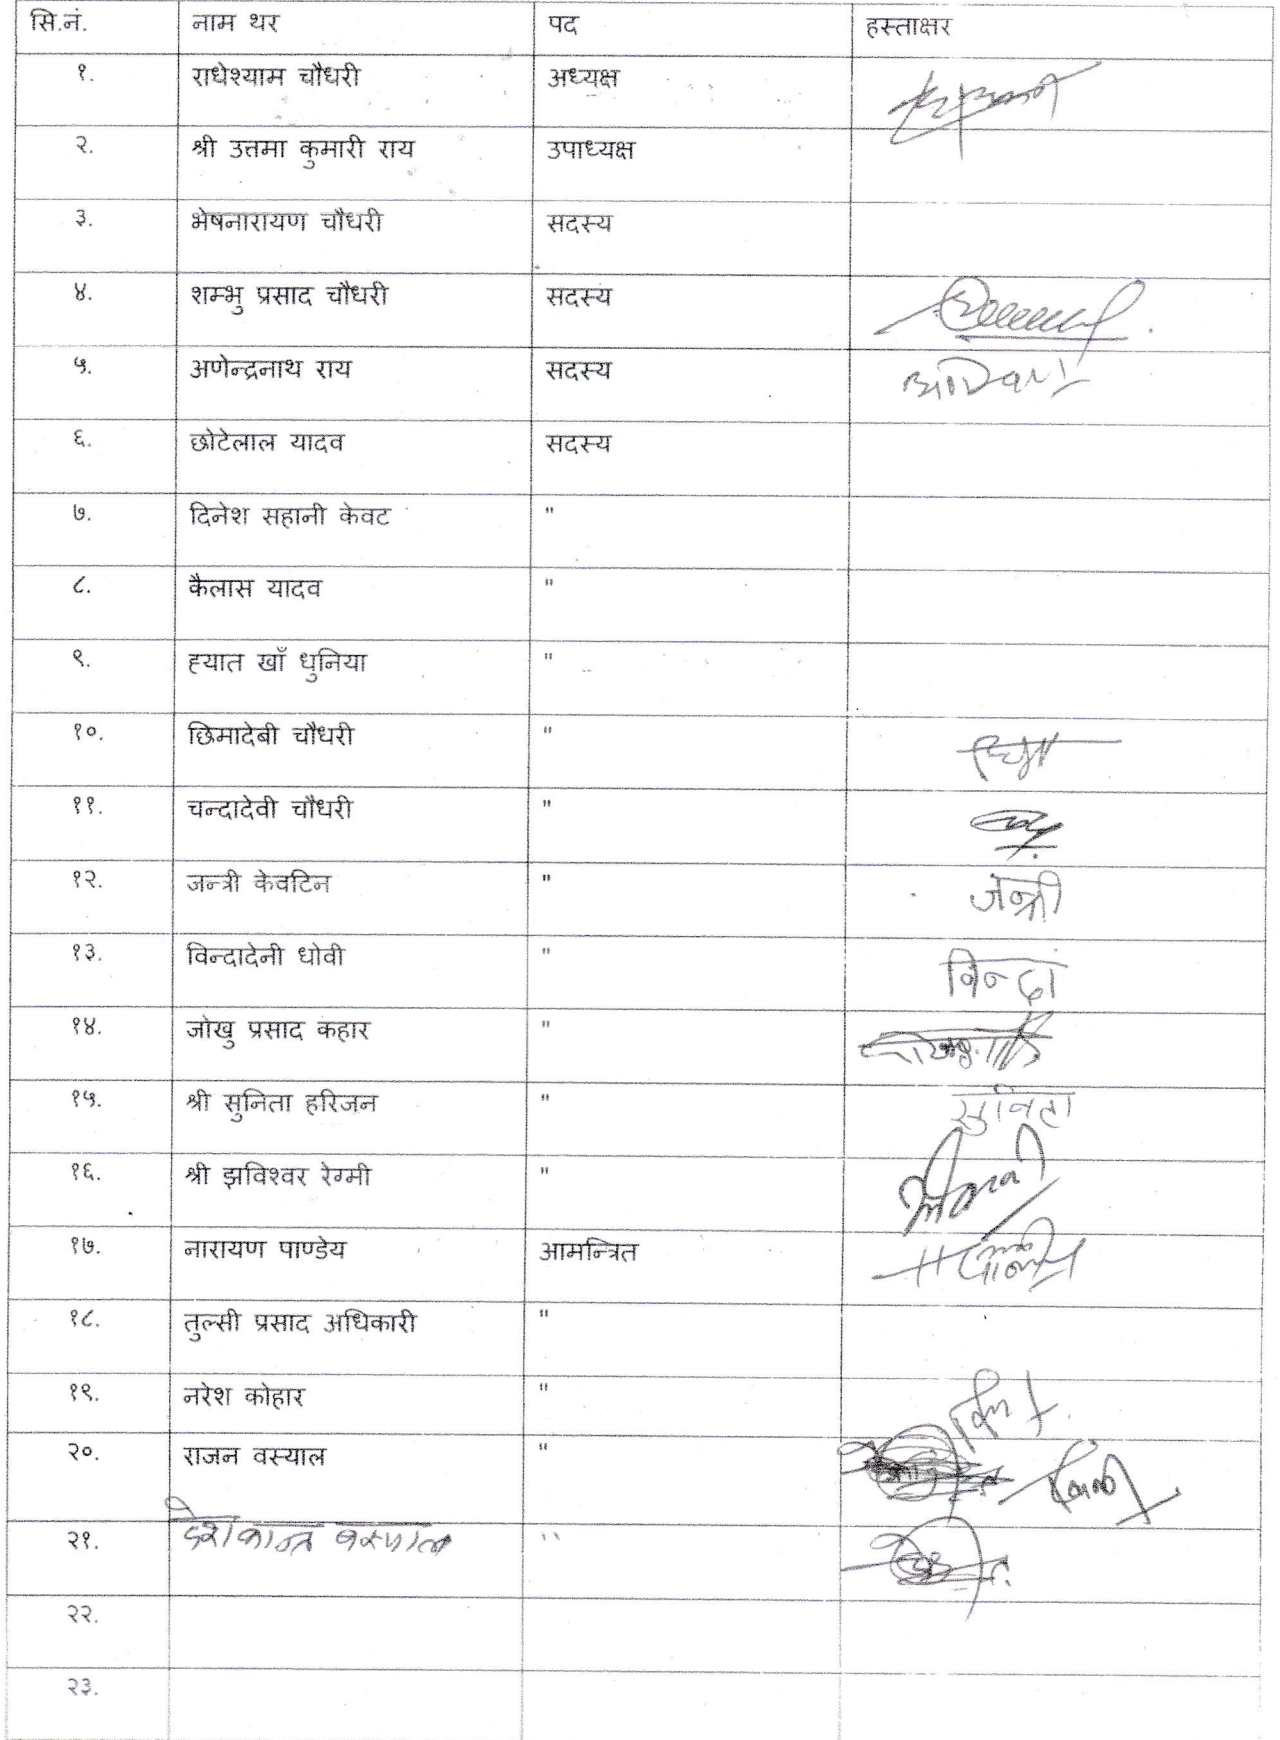 सि.नं. नाम थर पद हस्ताक्षर
१. राधेश्याम चौधरी अध्यक्ष
२. श्री उत्तमा कुमारी राय उपाध्यक्ष
३. भेषनारायण चौधरी सदस्य
४. शम्भु प्रसाद चौधरी सदस्य
५. अणेन्द्रनाथ राय सदस्य
६. छोटेलाल यादव सदस्य
७. दिनेश सहानी केवट "
८. कैलास यादव "
९. ह्यात खाँ धुनिया "
१०. छिमादेबी चौधरी "
११. चन्दादेवी चौधरी "
१२. जन्त्री केवटिन " जन्त्री
१३. विन्दादेनी धोवी " विन्दा
१४. जोखु प्रसाद कहार "
१५. श्री सुनिता हरिजन " सुनिता
१६. श्री झविश्वर रेग्मी "
१७. नारायण पाण्डेय आमन्त्रित
१८. तुल्सी प्रसाद अधिकारी "
१९. नरेश कोहार "
२०. राजन वस्याल "
२१. देशकान्त वस्याल "
२२.
२३.